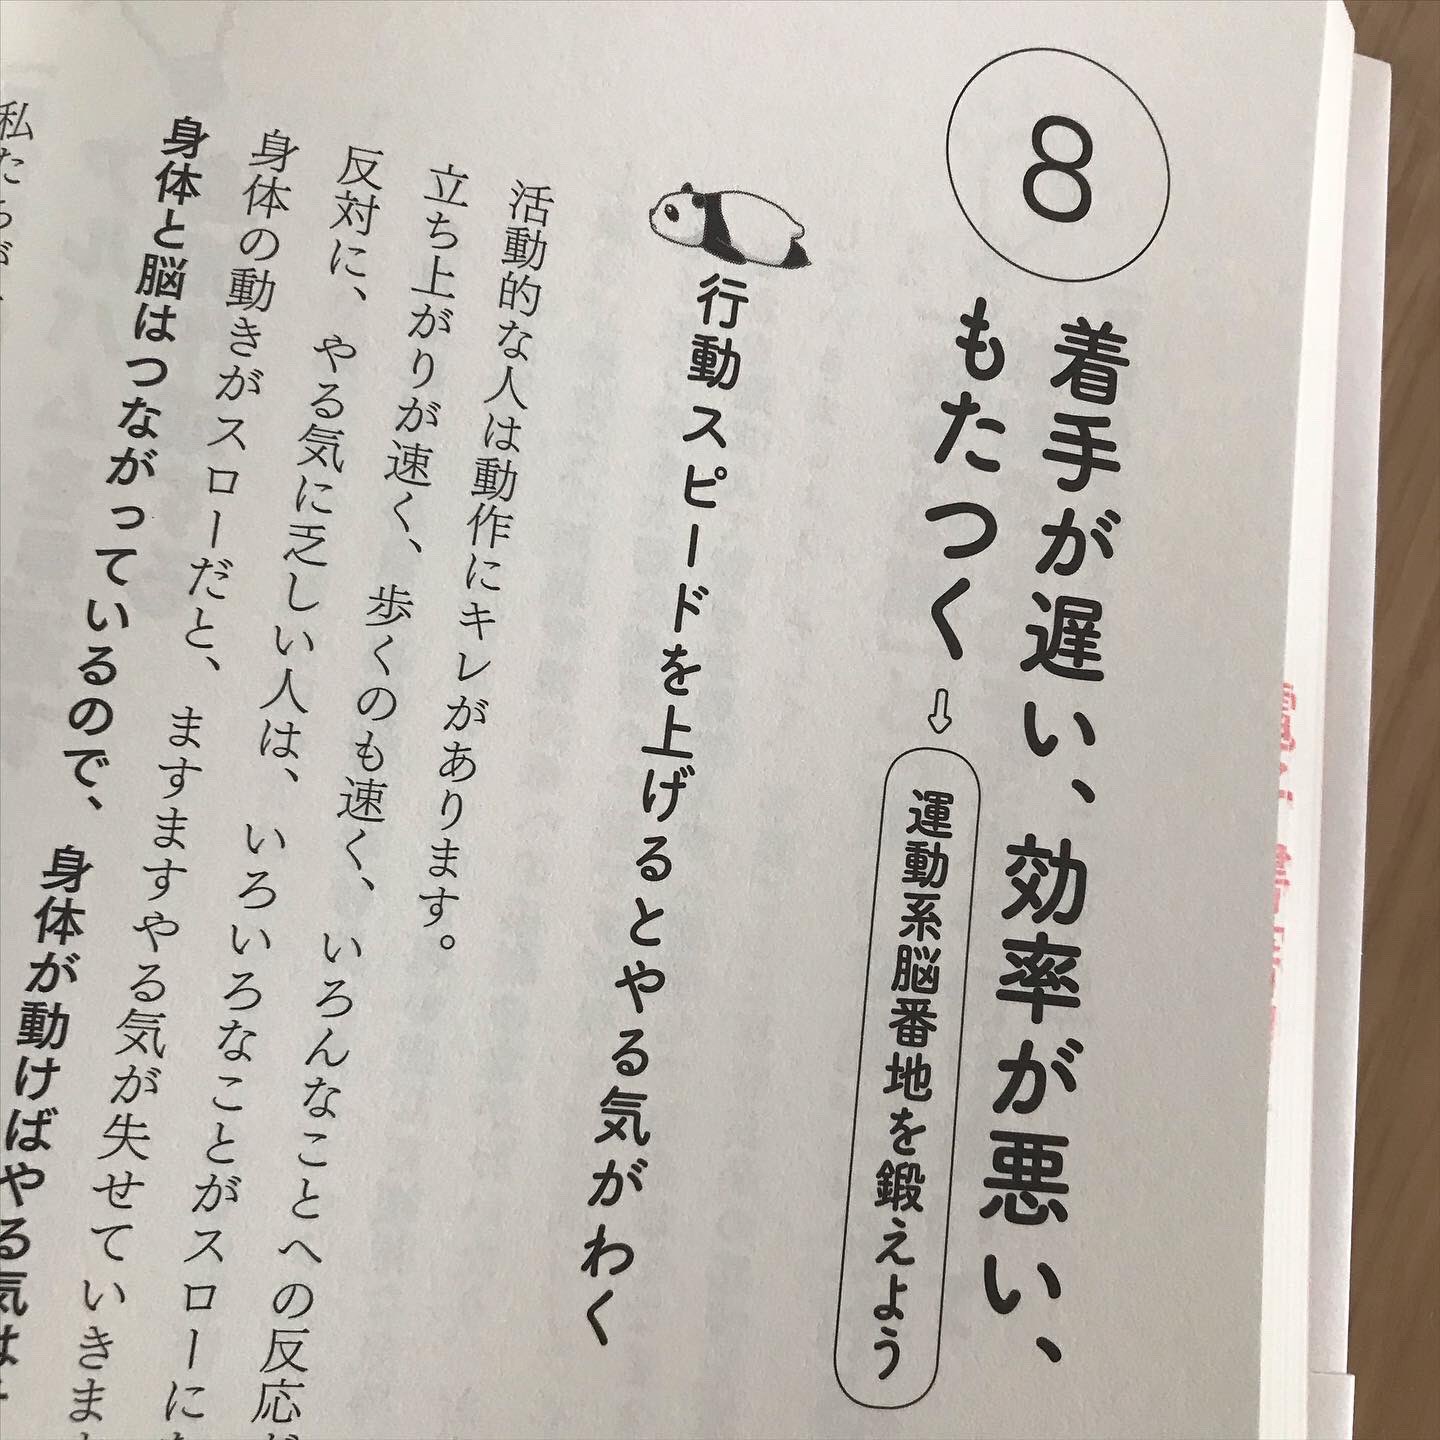 8
着手が遅い、効率が悪い、
もたつく⇨運動系脳番地を鍛えよう
行動スピードを上げるとやる気がわく
活動的な人は動作にキレがあります。
立ち上がりが速く、歩くのも速く、いろんなことへの反応が
反対に、やる気に乏しい人は、いろいろなことがスローに
身体の動きがスローだと、ますますやる気が失せていきま
身体と脳はつながっているので、身体が動けばやる気は
私たちが